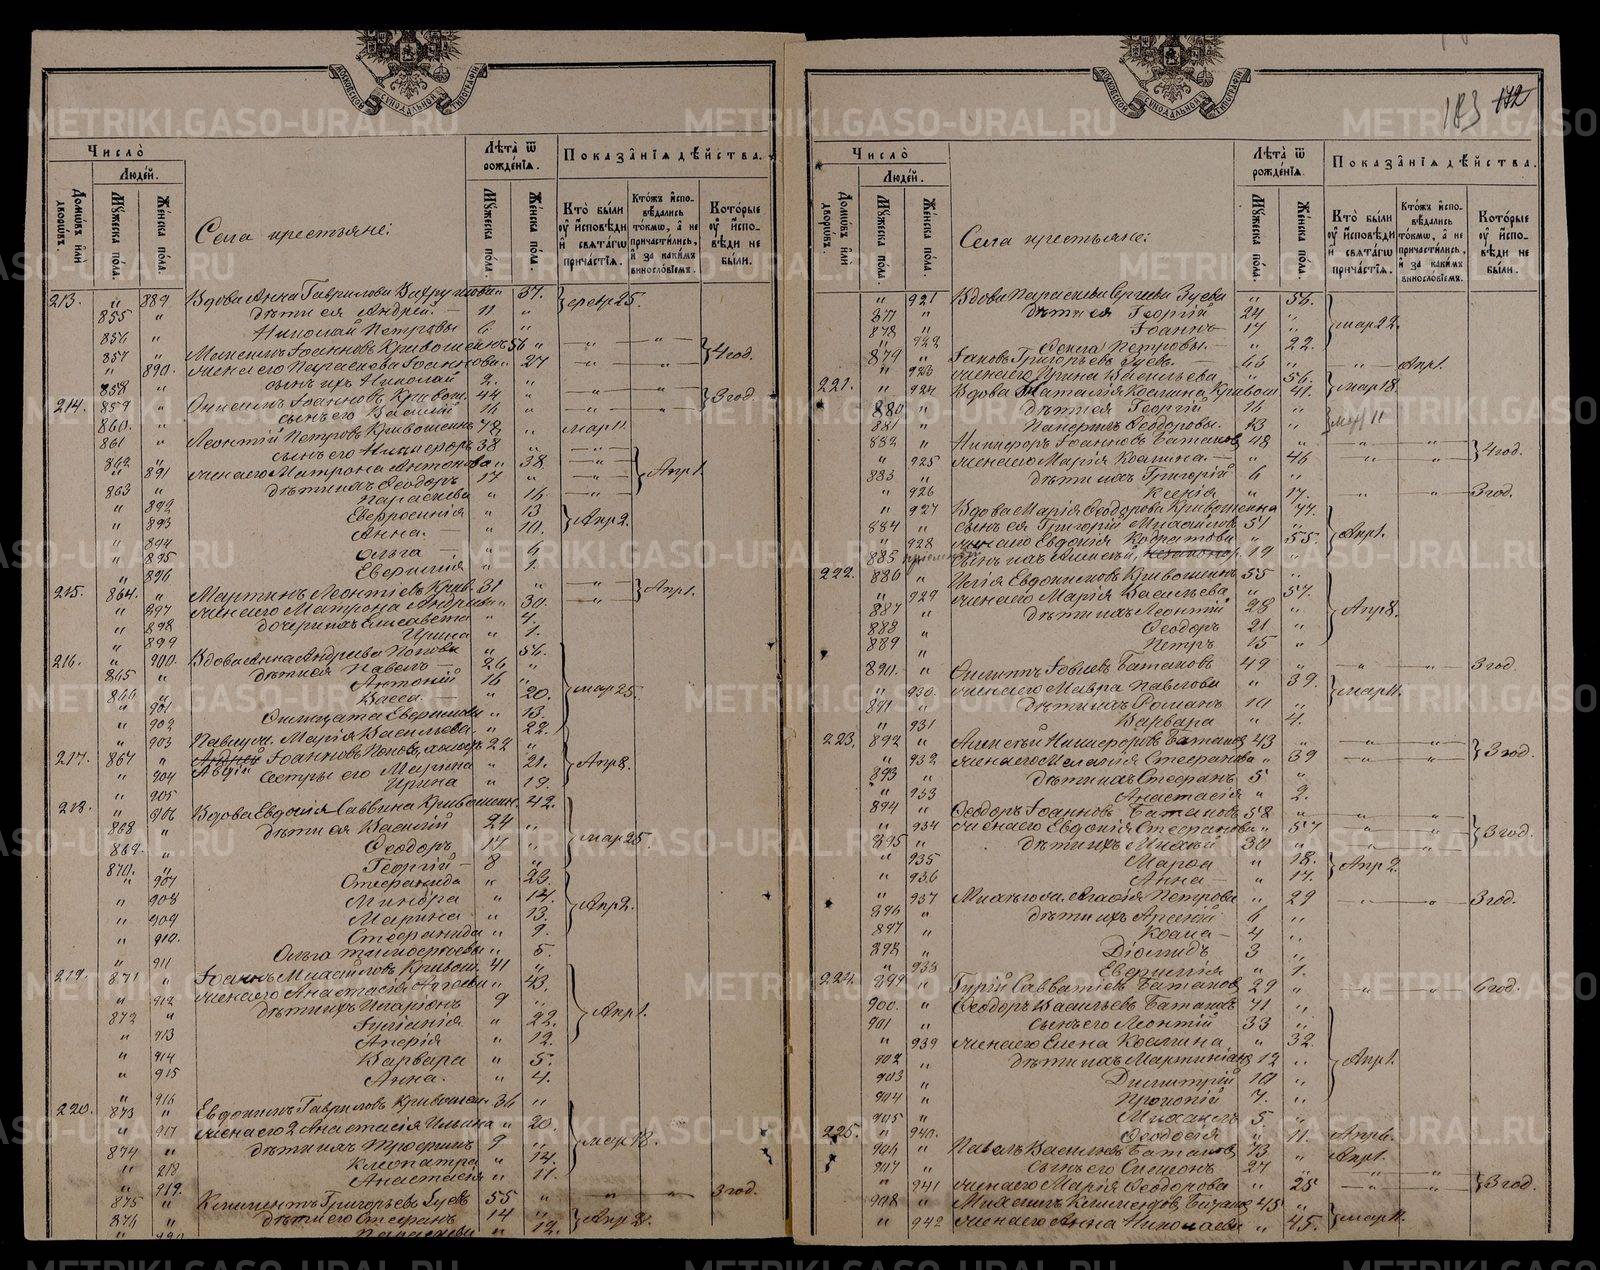 МОСКОВСКОЙ СѴНОДАЛЬНОЙ ТИПОГРАФІИ
Число
Людей.
Домѡвъ или дворѡвъ.
Мꙋжеска пола.
Женска пола.
Села крестьяне:
Лѣта ѿ рожденїя.
Мꙋжеска пола.
Женска пола.
Показанїя дѣйства.
Кто были оу исповѣди и свѧтагѡ причастїя.
Ктожъ исповѣдались токмѡ, а не причастились, и за какимъ винословїемъ.
Которые оу исповѣди не были.
213. " 889 Вдова Анна Гаврилова Вахрушева " 37.
855 " дѣти ея Андрей — 11 "
856 " Николай Петровы 6 "
857 " Іоанновъ Кривошеинъ 56 " — " — " — 4 год.
" 890. жена его Параскева Іоаннова " 27
858 " сынъ ихъ Николай 2. "
214. 859 " Онисимъ Іоанновъ Кривош. 44 " 3 год.
860. " сынъ его Василій 16 "
861 " Леонтій Петровъ Кривошеинъ 72 " мар 11.
862 " сынъ его Никифоръ 38 "
" 891 жена его Матрона Антонова " 38. Апр 1.
863 " дѣти ихъ Ѳеодоръ 17 "
" 892 Параскева " 16
" 893 Евфросинія " 13 Апр 2.
" 894 Анна. " 10.
" 895 Ольга —
" 896 Евфимія " 1.
215. 864. " Мартинъ Леонтіевъ Крив. 31 " Апр 1.
" 897 жена его Матрона Андреева " 30.
" 898 дочери ихъ Елисавета
" 899 Ирина " 1.
216. " 900. Вдова Анна Андреева Попова " 56.
865 " дѣти ея Павелъ — 26 "
866 " Антоній 16 "
" 901 Васса. — " 20. мар 25.
" 902 Евфимовы " 13.
" 903 Марія Васильева. " 22.
217. 867 " Авдій Іоанновъ Поповъ, холостъ 22 "
" 904 Сестры его Марина " 21. Апр 8.
" 905 Ирина " 19.
218. " 906 Вдова Евдокія Саввина Кривошеин. 42.
868 " дѣти ея Василій 24 "
869. " Ѳеодоръ 17 " мар 25.
870. " Георгій — 8 "
" 907 Стефанида " 23.
" 908 " 14. Апр 2.
" 909 Марина " 13.
" 910. Стефанида " 9.
" 911 Ольга Тимофеевы " 5.
219. 871 " Іоаннъ Михайловъ Кривош. 41 "
" 912 жена его Анастасія " 43.
872 " дѣти ихъ Иларіонъ 9 "
" 913 Іуліанія " 22. Апр 1.
" 914 " 12.
" 915 Варвара " 5.
" 916 Анна. " 4.
220. 873 " Евдокимъ Гавриловъ Кривошеин 36 "
" 917 жена его 2 Анастасія Ильина " 20.
874 " дѣти ихъ Трофимъ 9 " мар 18.
" 918 Клеопатра " 14.
" 919. Анастасія " 11.
875 " Климентъ Григорьевъ Зуевъ 55 " — " — " — 3 год.
876 " дѣти его Стефанъ 14 "
Параскева " 12.
183 172
МОСКОВСКОЙ СѴНОДАЛЬНОЙ ТИПОГРАФІИ
Число
Людей.
Домѡвъ или дворѡвъ.
Мꙋжеска пола.
Женска пола.
Села крестьяне:
Лѣта ѿ рожденїя.
Мꙋжеска пола.
Женска пола.
Показанїя дѣйства.
Кто были оу исповѣди и свѧтагѡ причастїя.
Ктожъ исповѣдались токмѡ, а не причастились, и за какимъ винословїемъ.
Которые оу исповѣди не были.
" 921 Вдова Параскева Сергиева Зуева " 54.
877 " дѣти ея Георгій 24 " мар 22.
878 " Іоаннъ — 17 "
" 922 Ѳекла Петровы. — " 22.
879 " Іаковъ Григорьевъ Зуевъ. 66 " Апр 1.
" 923 жена его Ирина Васильева " 56.
221. " 924 Вдова Наталія Космина Кривош 41. мар 18.
880 " дѣти ея Георгій 16 "
881 " Ѳеодоровы. 13 "
882 " Никифоръ Іоанновъ Батаковъ 48 " 4 год.
" 925 жена его Марія Космина. — " 46
883 " дѣти ихъ Григорій 6 "
" 926 Ксенія " 17. — " — " — 3 год.
" 927 Вдова Марія Ѳеодорова Кривошеина " 77.
884 " сынъ ея Григорій Михайловъ 51 "
" 928 жена его Евдокія Кодратова " 55. Апр 1.
885 " сынъ ихъ Алексѣй 19 "
222. 886 " Илія Евдокимовъ Кривошеинъ 55 "
" 929 жена его Марія Васильева " 57.
887 " дѣти ихъ Леонтій 28 " Апр 8.
888 " Ѳеодоръ 21 "
889 " Петръ 15 "
890. " Филиппъ Іовлевъ Батаковъ 49 " — " — " — 3 год.
" 930. жена его Мавра Павлова " 39. мар 11.
891 " дѣти ихъ Романъ 10 "
" 931 Варвара " 4.
223. 892 " Алексѣй Никифоровъ Батаковъ 43 " 3 год.
" 932 жена его Меланія Стефанова " 39
893 " дѣти ихъ Стефанъ 5 "
" 933 Анастасія " 2.
894 " Ѳеодоръ Іоанновъ Батаковъ 58 "
" 934 жена его Евдокія Стефанова " 57 3 год.
895 " дѣти ихъ 30 "
" 935 Марѳа " 18. Апр 2.
" 936 Анна — " 14.
" 937 Агафія Петрова " 29 — " — " — 3 год.
896 " дѣти ихъ Арсеній 6 "
897 " Косма — 4 "
898 " Діомидъ 3 "
" 938 Евфимія " 1.
224. 899 " Гурій Савватіевъ Батаковъ 29 " — " — " — 6 год.
900. " Ѳеодоръ Васильевъ Батаковъ 71 "
901 " сынъ его Леонтій 33 "
" 939 жена его Елена Космина " 32.
902 " дѣти ихъ Мартиніанъ 12 " Апр 1.
903 " Димитрій 10 "
904 " Прокопій 7. "
905 " Михаилъ 5 "
" 940. Ѳеодосія " 11. Апр 6.
225. 906 " Павелъ Васильевъ Батаковъ 73 " Апр 1.
907 " сынъ его Симеонъ 27 "
" 941 жена его Марія Ѳеодорова " 25 3 год.
908 " Климентовъ Батаковъ 45 "
" 942 жена его Анна Николаева " 45. мар 11.
METRIKI.GASO-URAL.RU